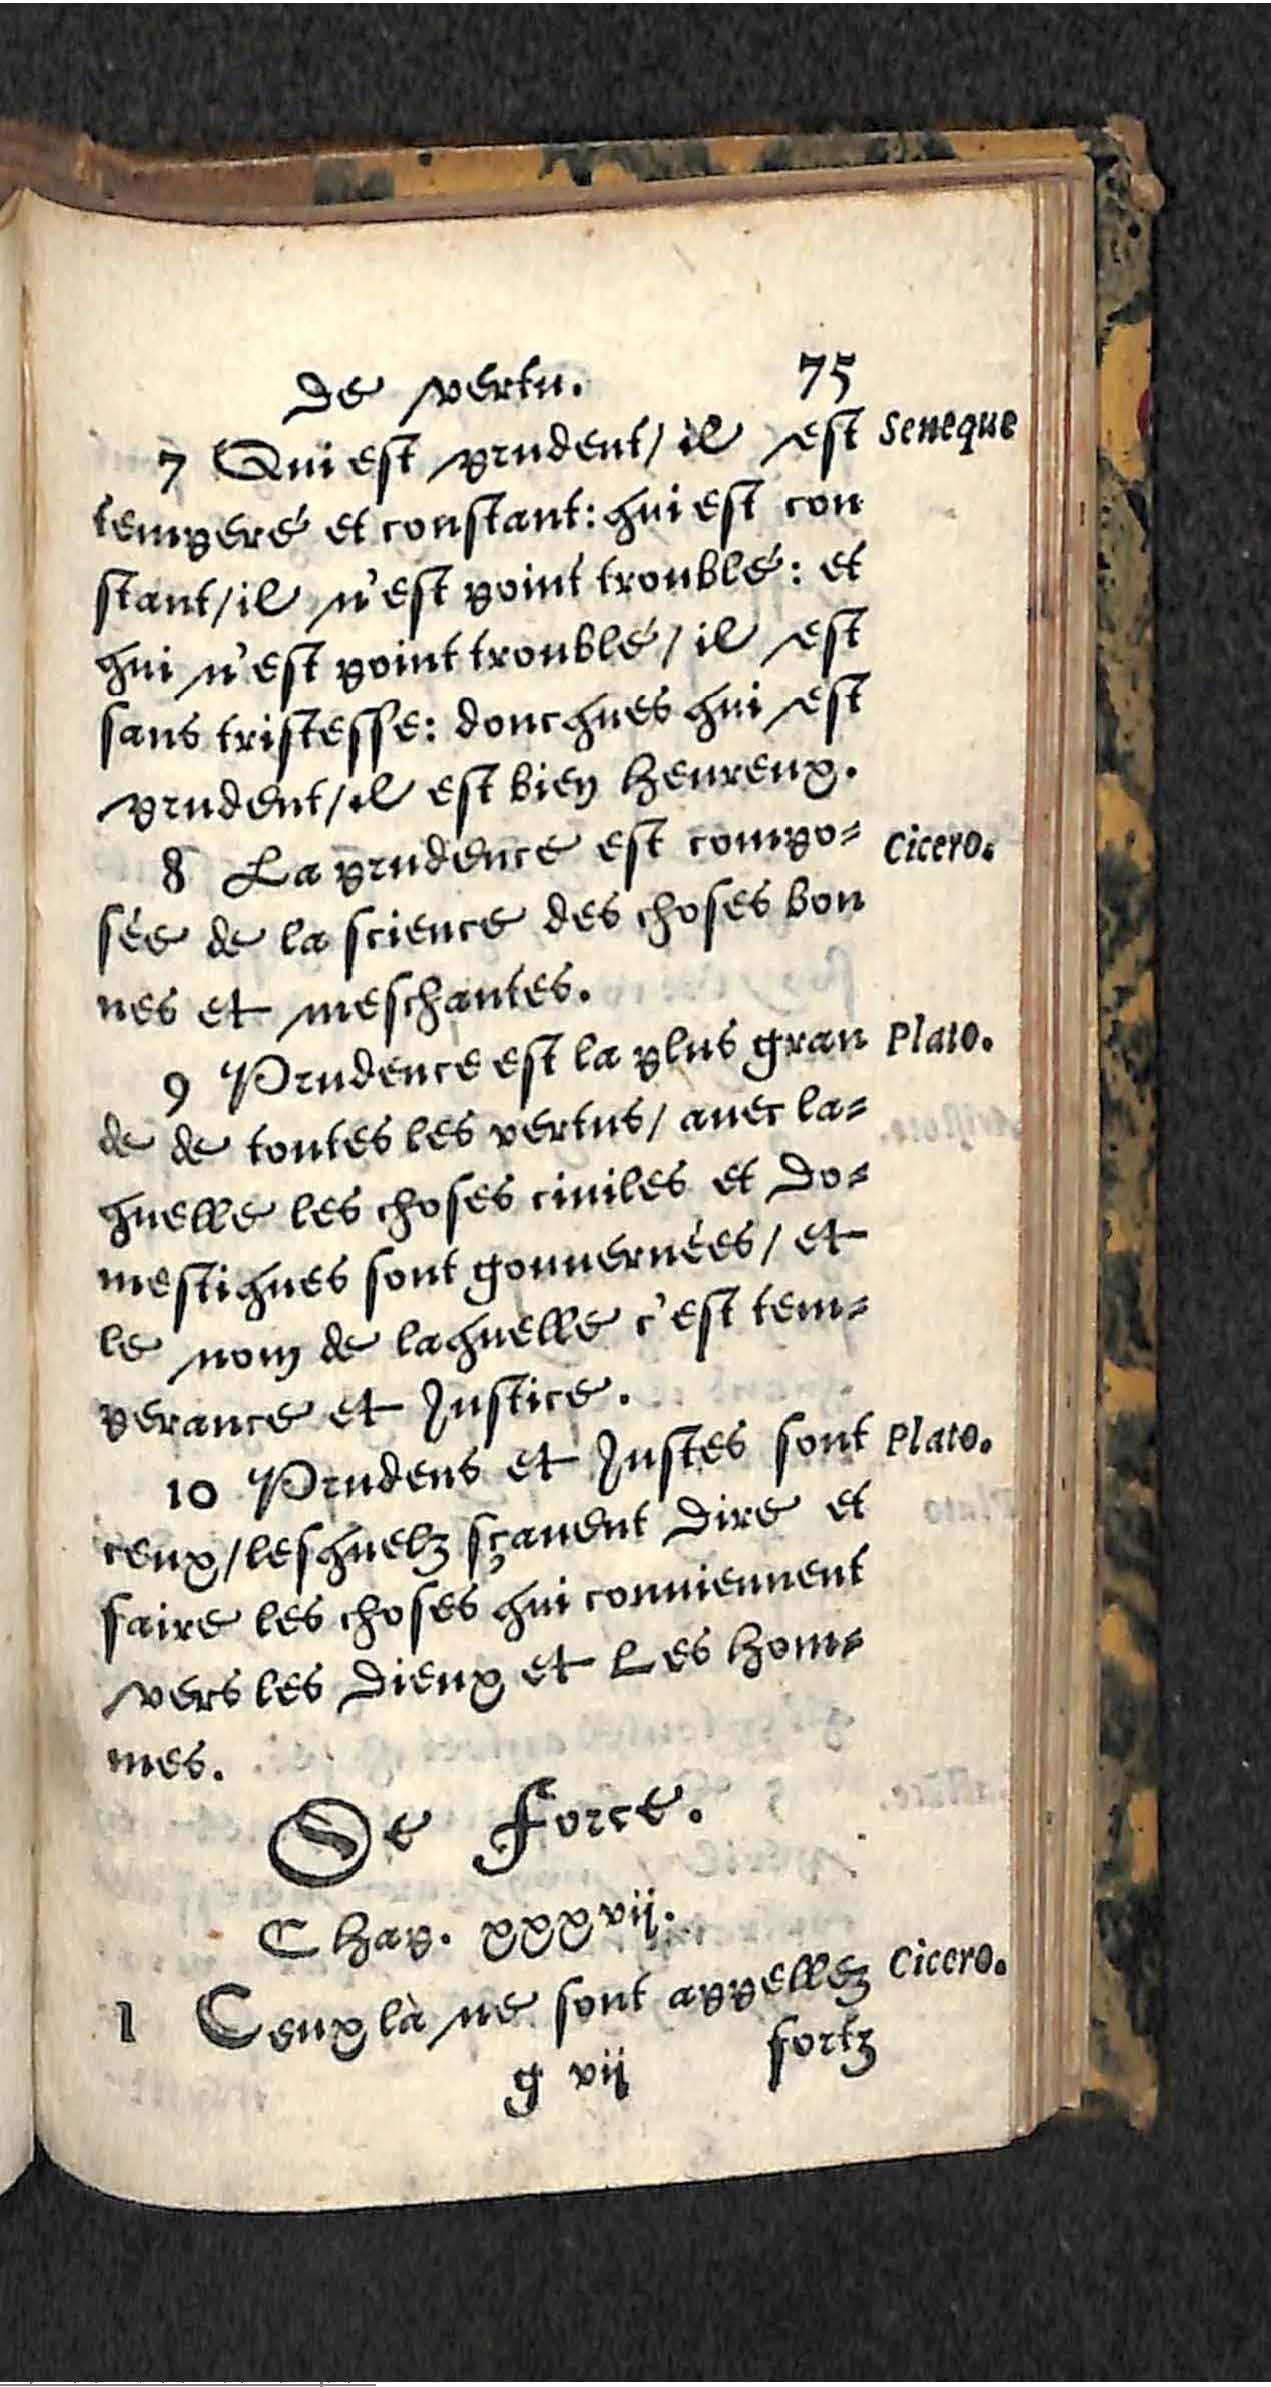 De vertu. 75
7 Qui est prudent/ il est Seneque
temperé et constant: qui est con
stant/ il n'est point troublé: et
qui n'est point troublé/ il est
sans tristesse: doncques qui est
prudent/ il est bien heureux.
8 La prudence est compo- Cicero.
sée de la science des choses bon
nes et meschantes.
9 Prudence est la plus gran Plato.
de de toutes les vertus/ auec la-
quelle les choses ciuiles et do-
mestiques sont gouuernées/ et
le nom de laquelle c'est tem-
perance et Justice.
10 Prudens et Justes sont Plato.
ceux/ lesquelz sçauent dire et
faire les choses qui conuiennent
vers les Dieux et Les hom-
mes.
De Force.
Chap. xxxvij.
1 Ceux là ne sont appellez Cicero.
g vij fortz